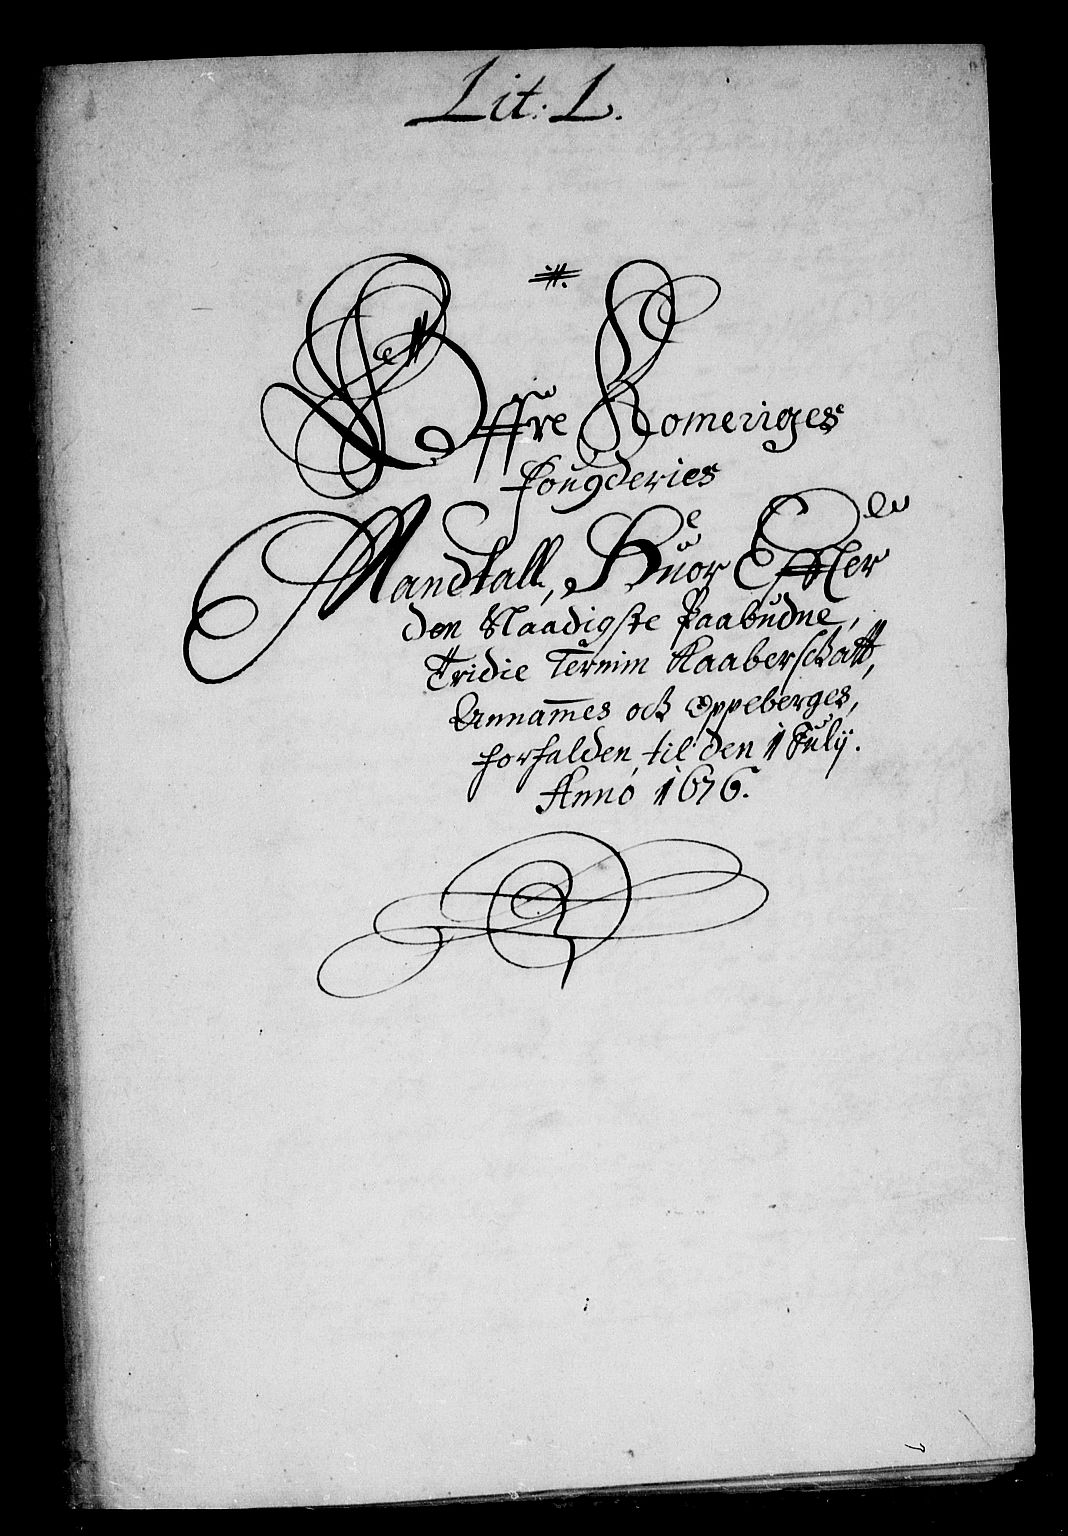 Lit: L.
Øffre Romeriges
Fougderies
Mandtall, Huor Effter
den Naadigste Paabudne,
Tridie Termin Kaaberschatt,
Annam̄es och Oppeberges,
forfalden til den 1 Julij.
Anno 1676.